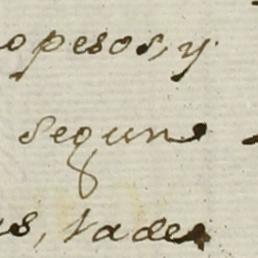 opesos, y
segun
s, tade